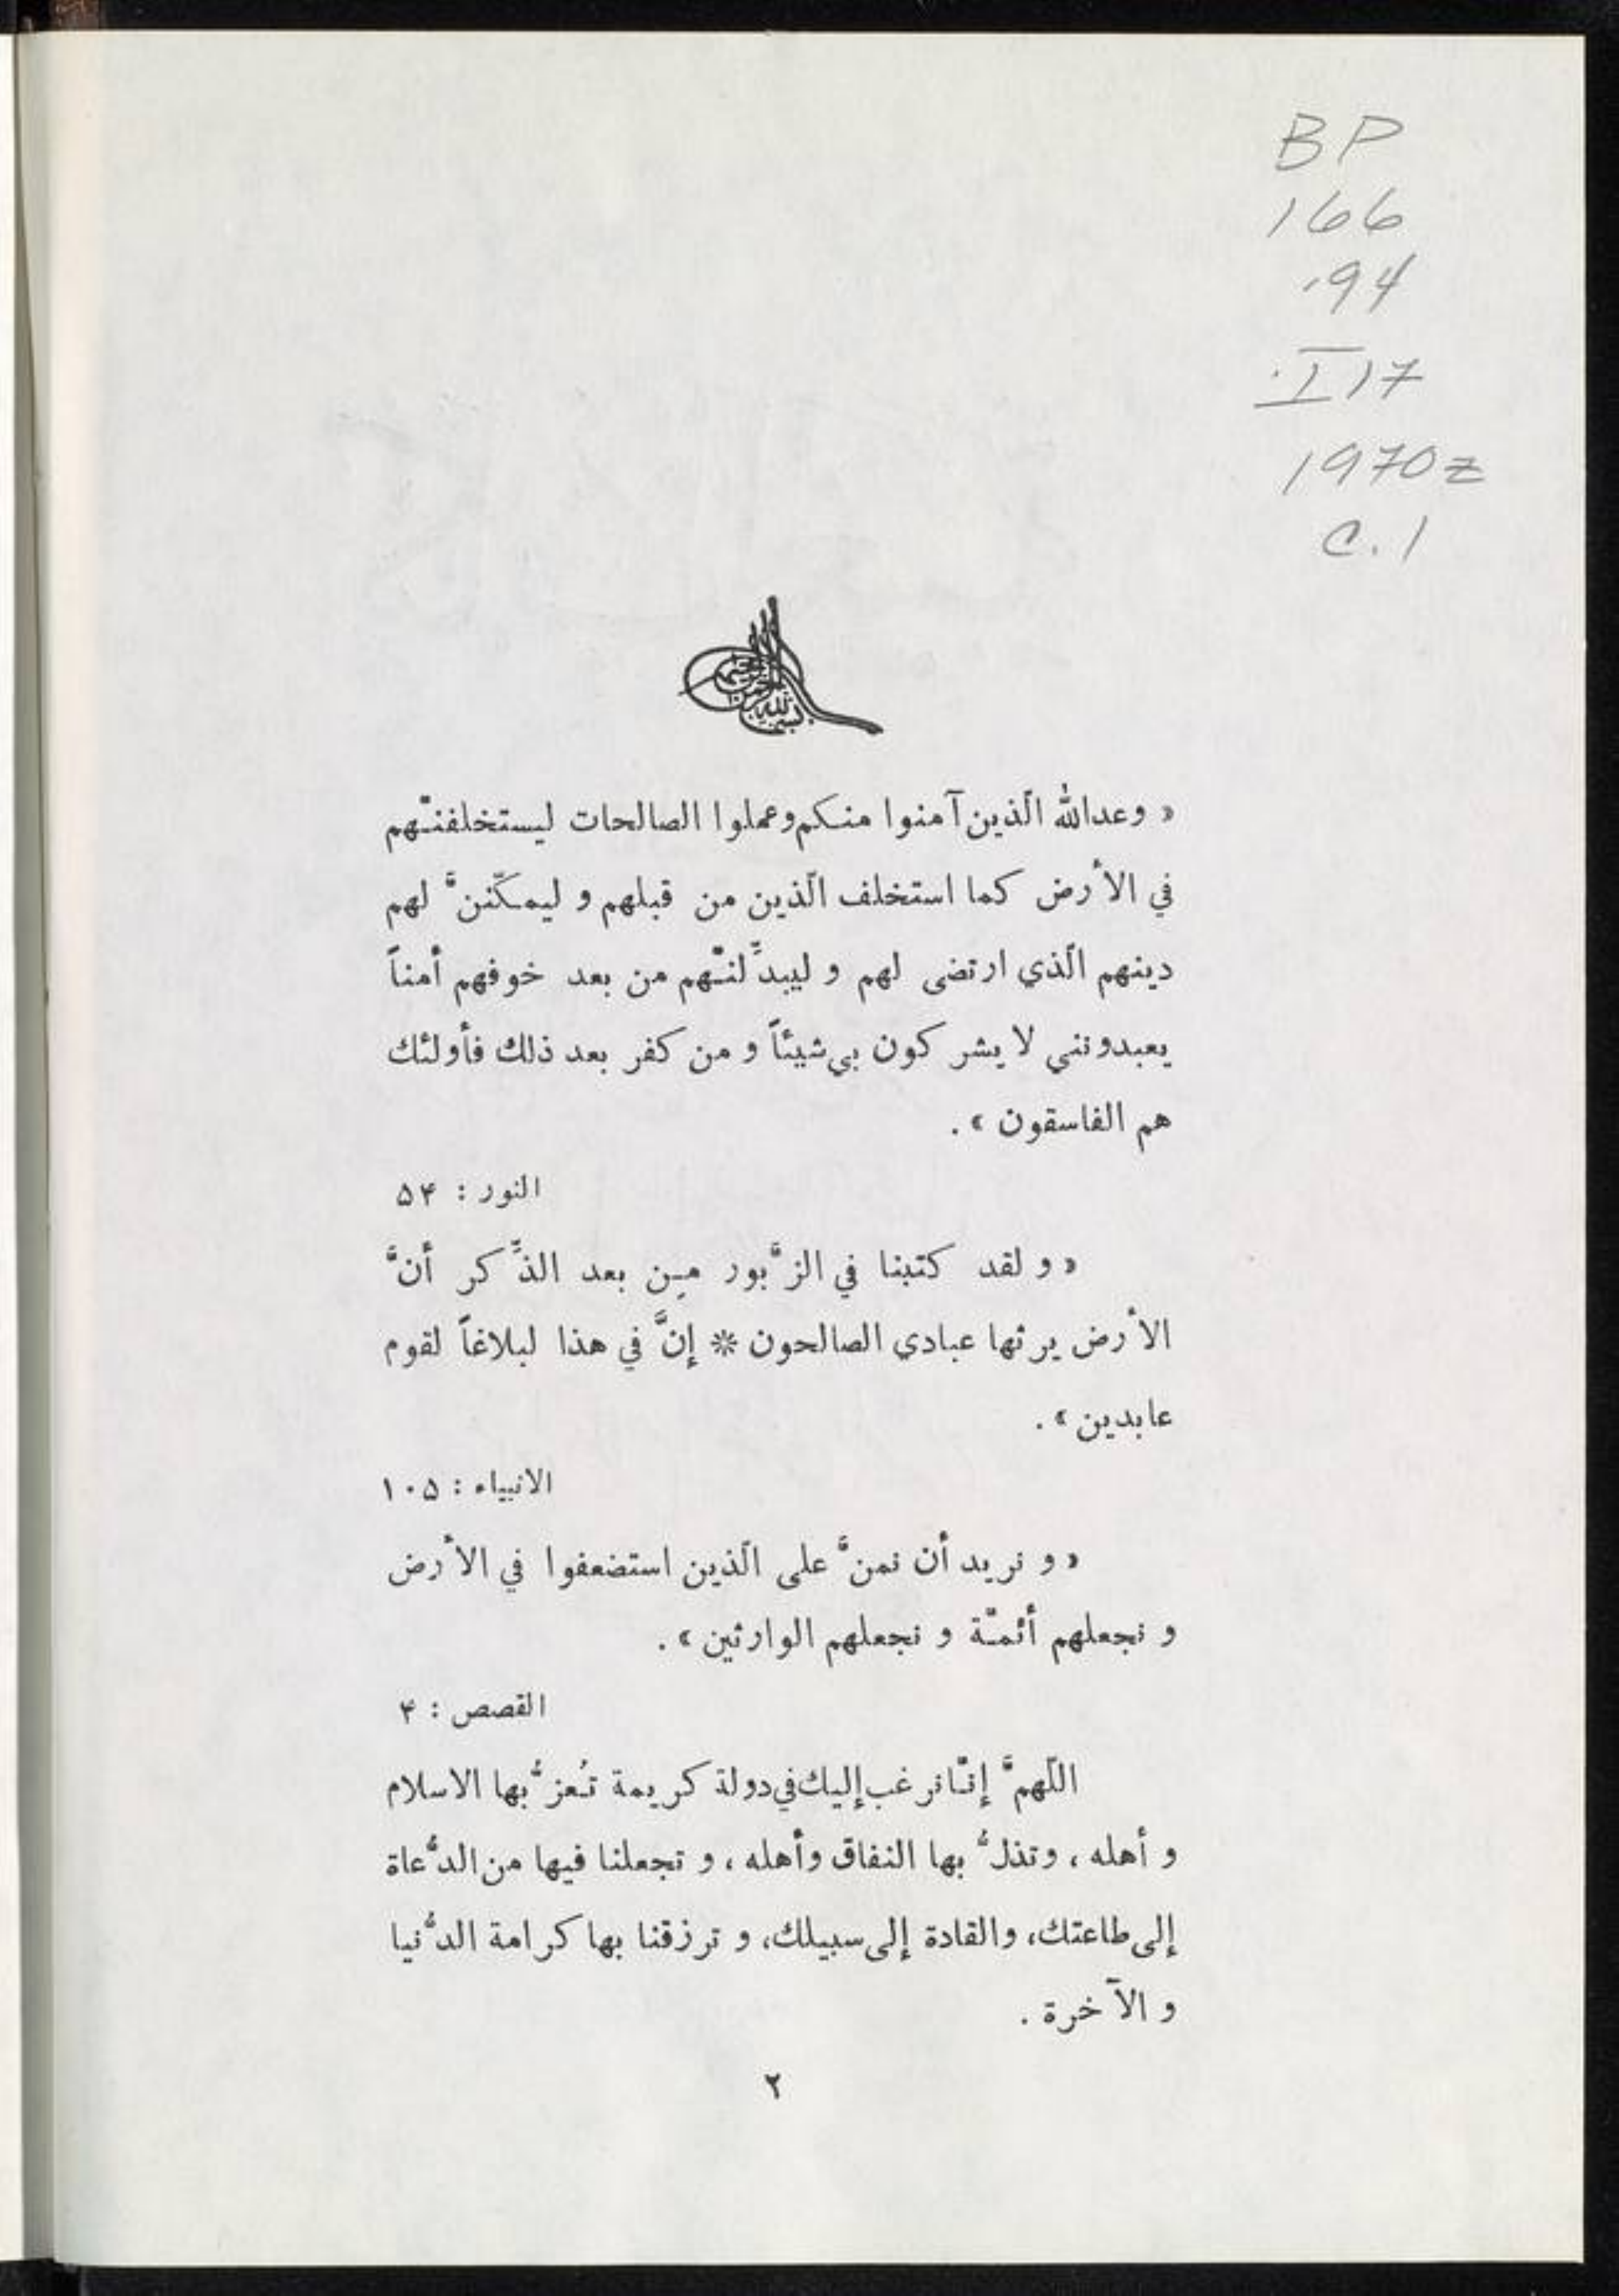 BP
166
.94
.I17
1970z
c.1
بسم الله الرحمن الرحيم
« وعدالله الّذين آمنوا منكم وعملوا الصالحات ليستخلفنّهم
في الأرض كما استخلف الّذين من قبلهم و ليمكّننَّ لهم
دينهم الّذي ارتضى لهم و ليبدِّلنّهم من بعد خوفهم أمناً
يعبدونني لا يشركون بي شيئاً و من كفر بعد ذلك فأولئك
هم الفاسقون » .
النور : ۵۴
« و لقد كتبنا في الزَّبور مِن بعد الذِّكر أنَّ
الأرض يرثها عبادي الصالحون * إنَّ في هذا لبلاغاً لقوم
عابدين » .
الانبياء : ۱۰۵
« و نريد أن نمنَّ على الّذين استضعفوا في الأرض
و نجعلهم أئمّة و نجعلهم الوارثين » .
القصص : ۴
اللّهمَّ إنّا نرغب إليك في دولة كريمة تُعزُّ بها الاسلام
و أهله ، وتذلُّ بها النفاق وأهله ، و تجعلنا فيها من الدُّعاة
إلى طاعتك، والقادة إلى سبيلك، و ترزقنا بها كرامة الدُّنيا
و الآخرة .
۲